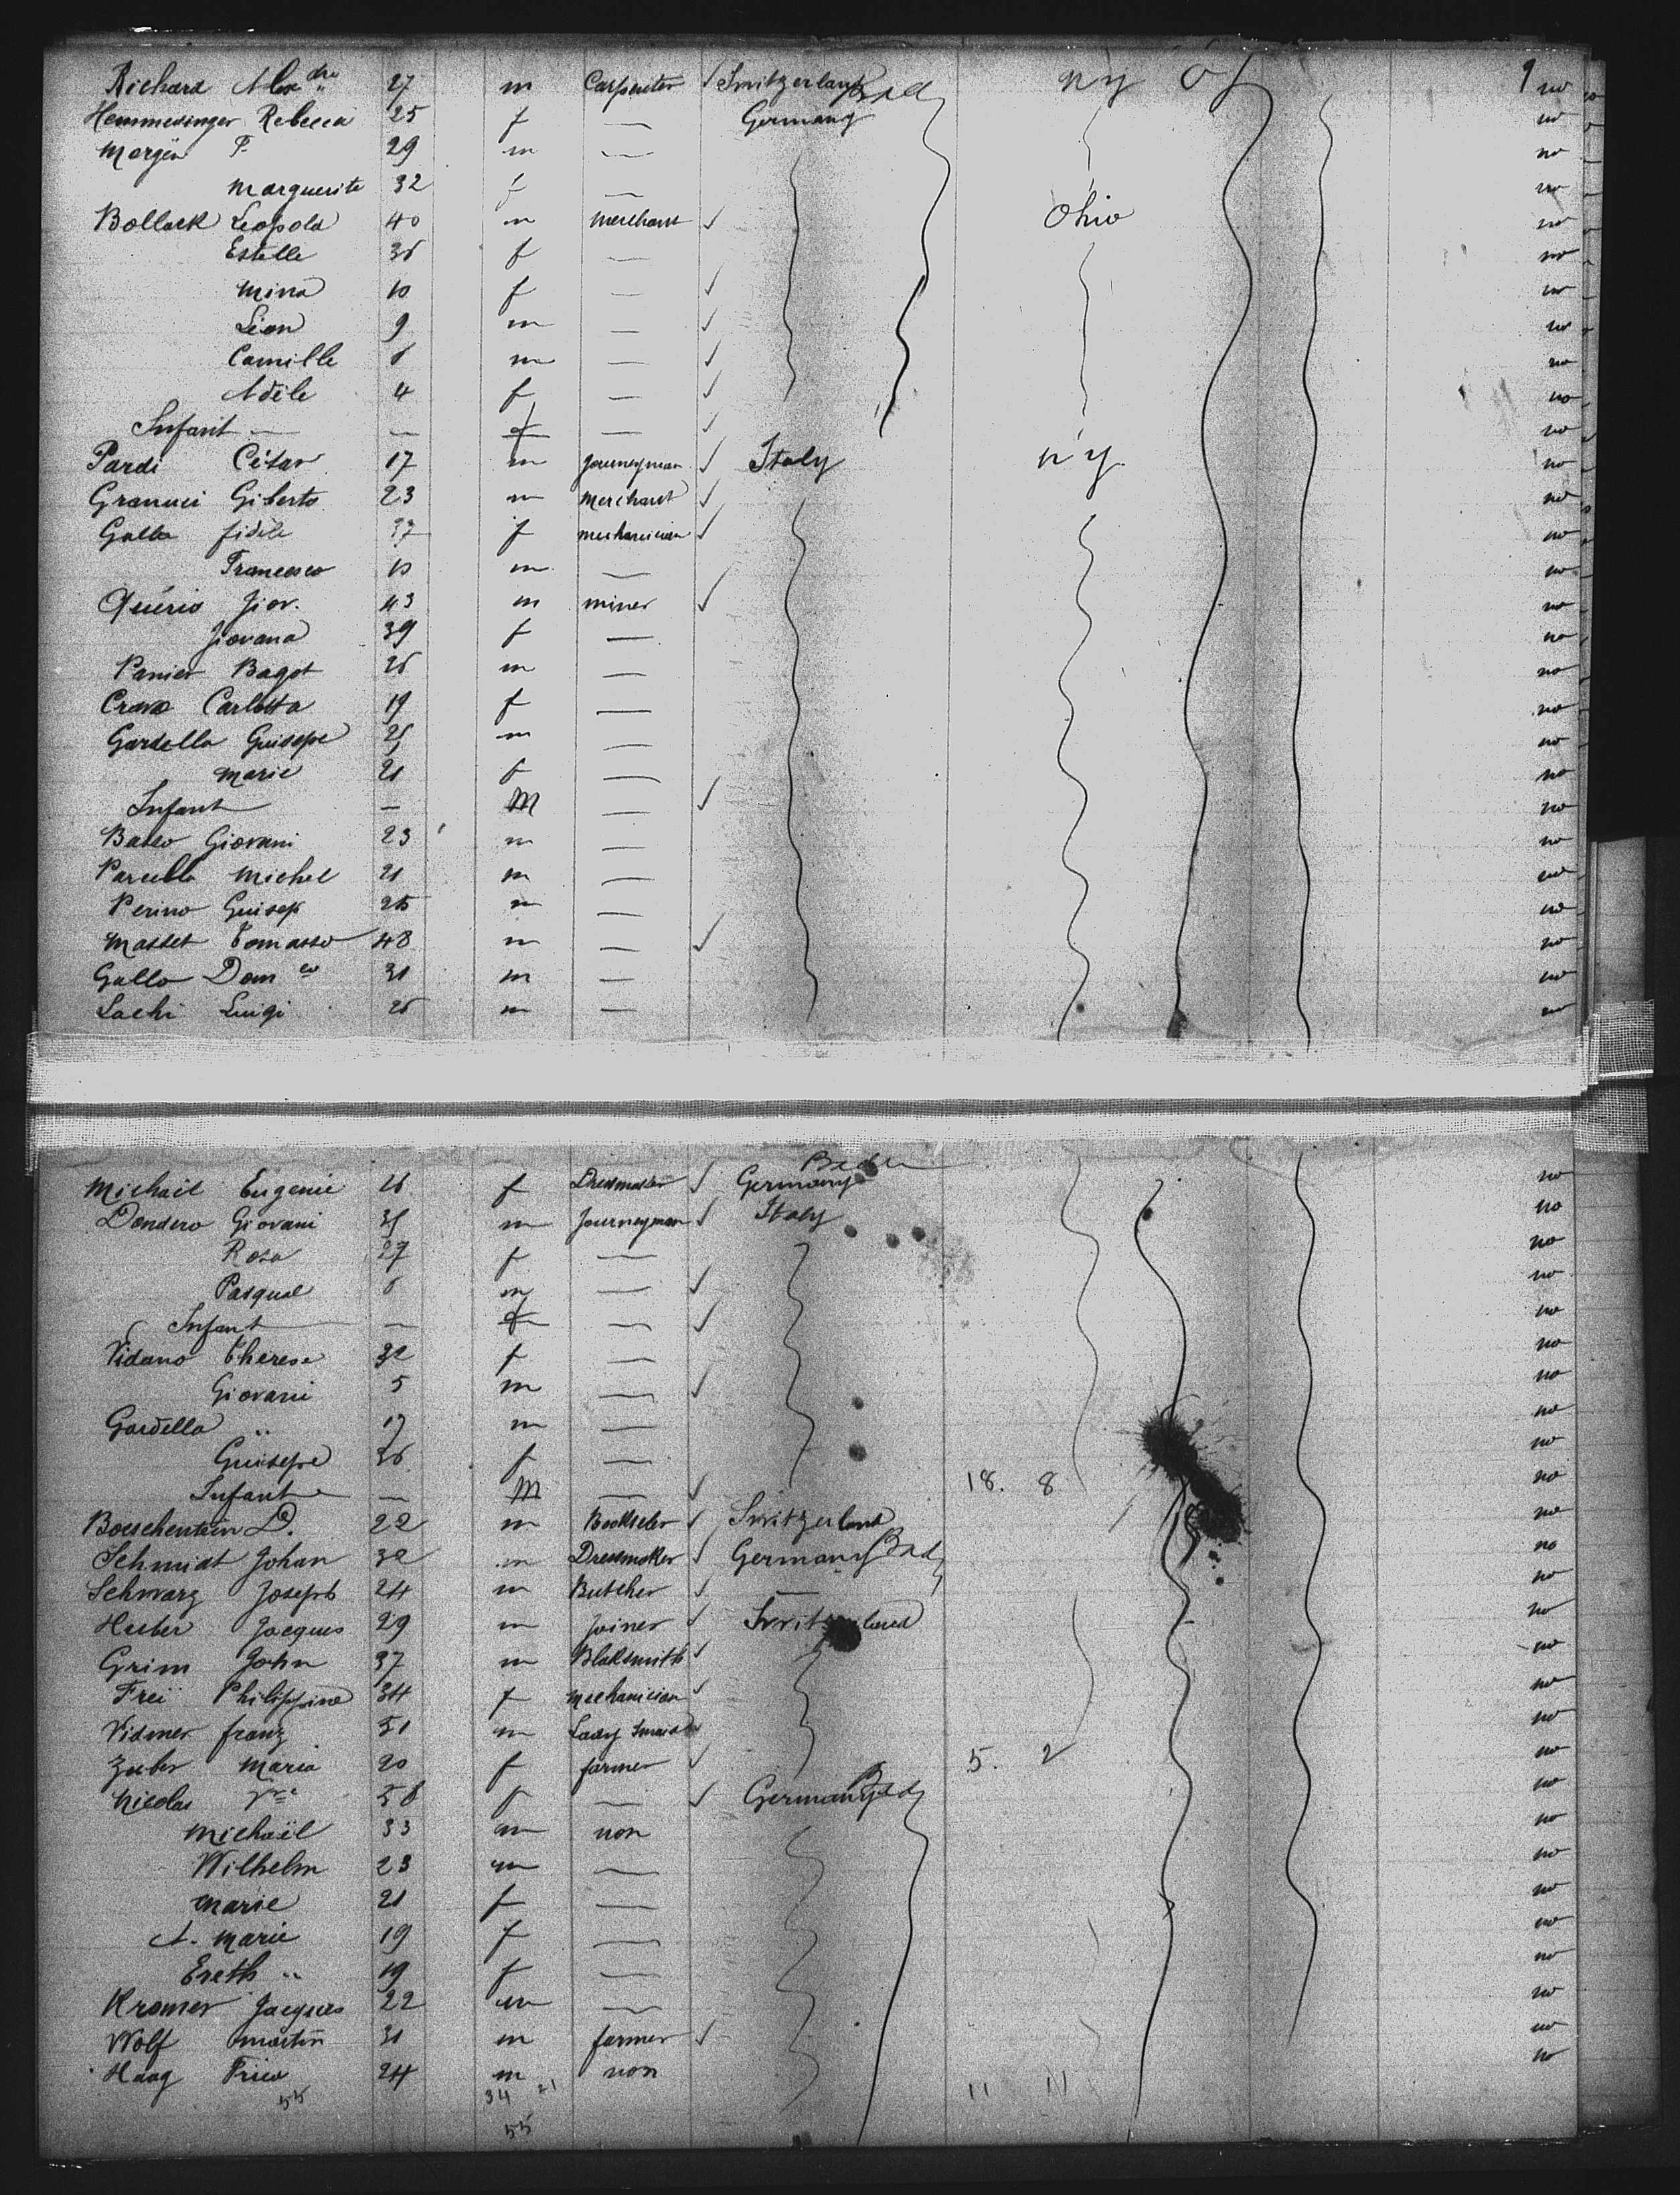 Richard Alexdre 27 m Carpenter ✓ Switzerland Bad ny of 9 no
Hemmedinger Rebecca 25 f — Germany no
Morgen P. 29 m — no
Marguerite 32 f — no
Bollack Leopold 40 m merchant ✓ Ohio no
Estelle 36 f — no
Mina 10 f — ✓ no
Léon 9 m — ✓ no
Camille 6 m — ✓ no
Adèle 4 f — ✓ no
Infant — — f — ✓ no
Pardi César 17 m Journeyman ✓ Italy n y. no
Granuci Giberto 23 m merchant ✓ no
Galla fidèle 37 f mechanician ✓ no
Francesco 10 m — no
Quério Giov. 43 m miner ✓ no
Jiovana 39 f — no
Panier Bagot 26 m — no
Crava Carlotta 19 f — no
Gardella Guisepe 25 m — no
Marie 21 f — no
Infant — M — ✓ no
Basso Giovani 23 m — no
Parcella Michel 21 m — no
Perino Guisep 25 m — no
Masset Tomasso 48 m — ✓ no
Gallo Domco 31 m — no
Lachi Luigi 26 m — no
Baden
Michaël Eugenie 26 f Dressmaker ✓ Germany no
Dondero Giovani 35 m Journeyman ✓ Italy no
Rosa 27 f — no
Pasqual 6 m — ✓ no
Infant — f — ✓ no
Vidano Thérèse 32 f — no
Giovani 5 m — ✓ no
Gardella " 17 m — no
Guisepe 26 f — no
Infant — M — ✓ 18. 8 no
Boeschentein D. 22 m Bookseler ✓ Switzerland no
Schmidt Johan 32 m Dressmaker ✓ Germany Bad no
Schwarz Joseph 24 m Butcher ✓ — no
Huber Jacques 29 m Joiner ✓ Switzerland no
Grim John 37 m Blaksmith ✓ no
Freï Philippine 34 f mechanician ✓ no
Vidmer franz 51 m Lady smaid ✓ no
Zuber Maria 20 f farmer ✓ 5. 2 no
Nicolas 58 f — ✓ Germany Bad no
Michaël 33 m non no
Wilhelm 23 m — no
Marie 21 f — no
A. Marie 19 f — no
Ereth " 19 f — no
Kromer Jacques 22 m — no
Wolf Martin 31 m farmer ✓ no
Haag 24 m non 11 11 no
55 34 21
55